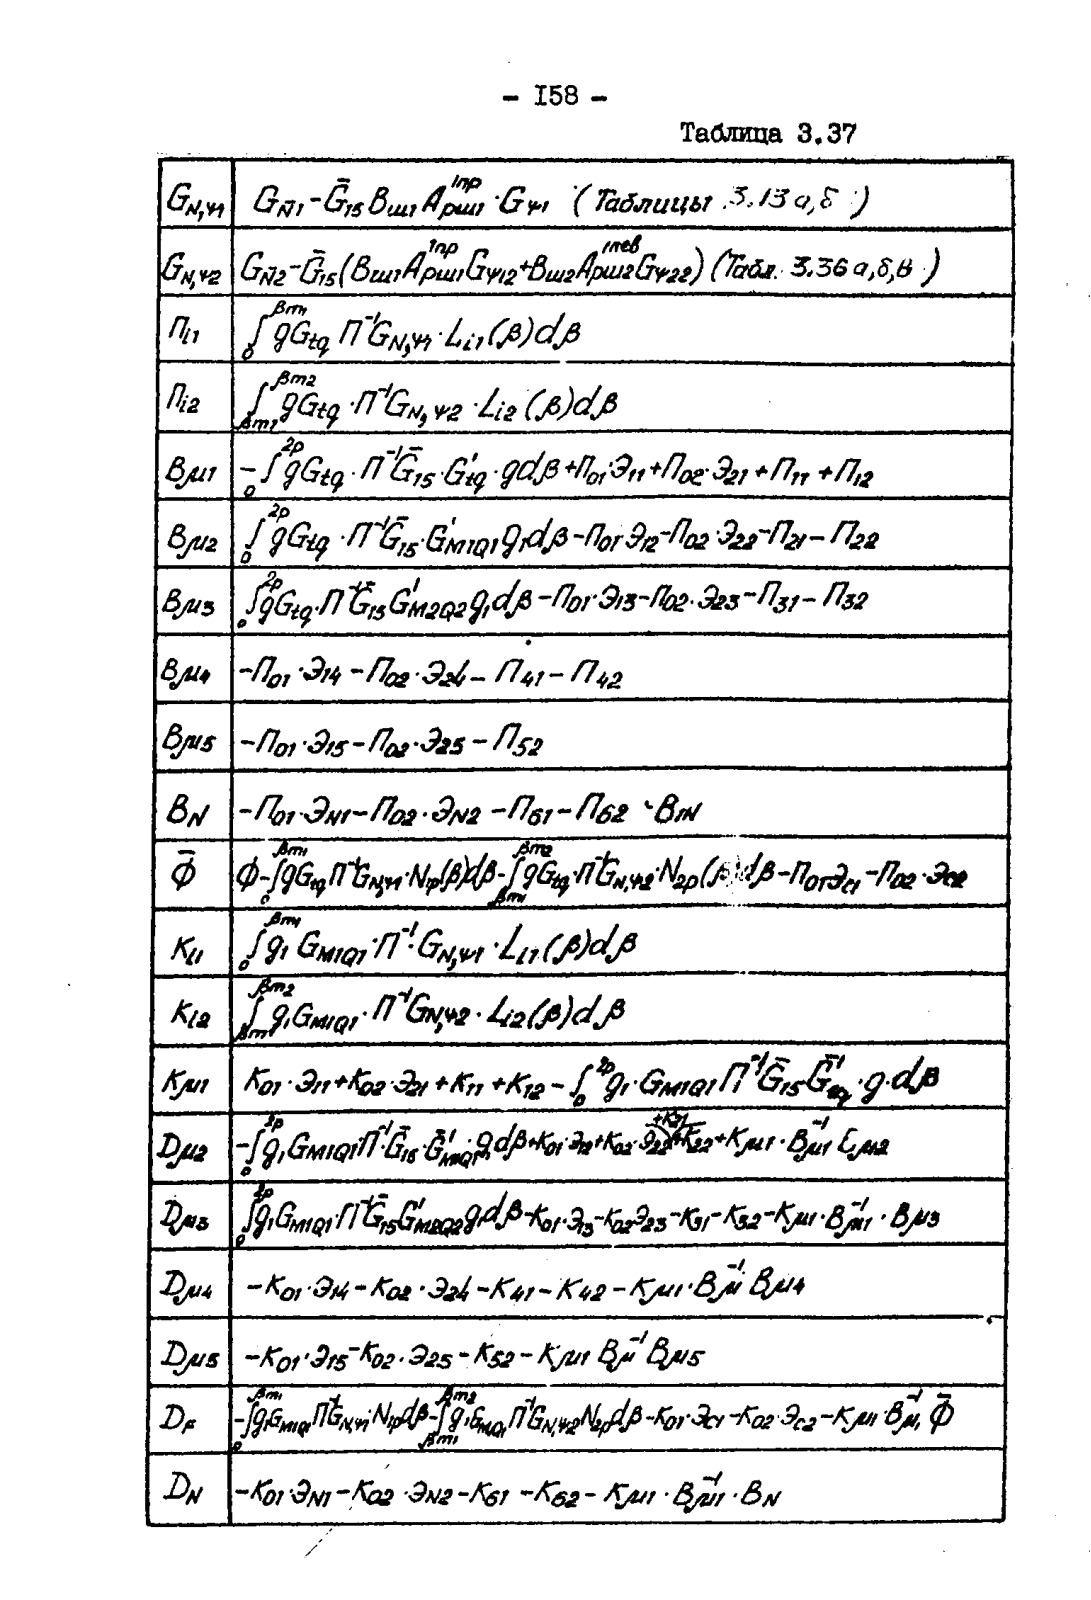 - I58 -
Таблица 3.37
G_{N,ψ1} G_{N̄1} - Ḡ_{15} B_{ш1} A_{рш1}^{1пр} · G_{ψ1} (Таблицы 3.13 а,б)
G_{N,ψ2} G_{N̄2} - Ḡ_{15}(B_{ш1} A_{рш1}^{1пр} G_{ψ12} + B_{ш2} A_{рш2}^{1лев} G_{ψ22}) (Табл. 3.36 а,б,в)
П_{i1} ∫_0^{βm1} gG_{tq} П^{-1} G_{N,ψ1} · L_{i1}(β)dβ
П_{i2} ∫_{βm1}^{βm2} gG_{tq} · П^{-1} G_{N,ψ2} · L_{i2}(β)dβ
B_{μ1} -∫_0^{2p} gG_{tq} · П^{-1} Ḡ_{15} · G'_{tq} · gdβ + П_{01}·Э_{11} + П_{02}·Э_{21} + П_{11} + П_{12}
B_{μ2} ∫_0^{2p} gG_{tq} · П^{-1} Ḡ_{15} · G'_{M1Q1} g_1dβ - П_{01}·Э_{12} - П_{02}·Э_{22} - П_{21} - П_{22}
B_{μ3} ∫_0^{2p} gG_{tq} · П^{-1} Ḡ_{15} G'_{M2Q2} g_1dβ - П_{01}·Э_{13} - П_{02}·Э_{23} - П_{31} - П_{32}
B_{μ4} -П_{01}·Э_{14} - П_{02}·Э_{24} - П_{41} - П_{42}
B_{μ5} -П_{01}·Э_{15} - П_{02}·Э_{25} - П_{52}
B_N -П_{01}·Э_{N1} - П_{02}·Э_{N2} - П_{61} - П_{62} · B_{1N}
Φ̄ Φ - ∫_0^{βm1} gG_{tq} П^{-1} G_{N,ψ1} · N_{1p}(β)dβ - ∫_{βm1}^{βm2} gG_{tq} · П^{-1} G_{N,ψ2} · N_{2p}(β)dβ - П_{01}Э_{c1} - П_{02}·Э_{c2}
K_{i1} ∫_0^{βm1} g_1 G_{M1Q1} · П^{-1} · G_{N,ψ1} · L_{i1}(β)dβ
K_{i2} ∫_{βm1}^{βm2} g_1 G_{M1Q1} · П^{-1} G_{N,ψ2} · L_{i2}(β)dβ
K_{μ1} K_{01}·Э_{11} + K_{02}·Э_{21} + K_{11} + K_{12} - ∫_0^{2p} g_1 · G_{M1Q1} П^{-1} Ḡ_{15} Ḡ'_{tq} · g·dβ
D_{μ2} -∫_0^{2p} g_1 G_{M1Q1} П^{-1} · Ḡ_{15} · Ḡ'_{M1Q1} g_1dβ + K_{01}·Э_{12} + K_{02}·Э_{22} +K_{21} + K_{22} + K_{μ1} · B_{μ1}^{-1} B_{μ2}
D_{μ3} ∫_0^{2p} g_1 G_{M1Q1} П^{-1} Ḡ_{15} G'_{M2Q2} g_1dβ - K_{01}·Э_{13} - K_{02}Э_{23} - K_{31} - K_{32} - K_{μ1} · B_{μ1}^{-1} · B_{μ3}
D_{μ4} -K_{01}·Э_{14} - K_{02}·Э_{24} - K_{41} - K_{42} - K_{μ1} · B_μ^{-1} B_{μ4}
D_{μ5} -K_{01}·Э_{15} - K_{02}·Э_{25} - K_{52} - K_{μ1} B_μ^{-1} B_{μ5}
D_F -∫_0^{βm1} g_1G_{M1Q1} П^{-1} G_{N,ψ1} · N_{1p}dβ - ∫_{βm1}^{βm2} g_1G_{M1Q1} П^{-1} G_{N,ψ2} N_{2p}dβ - K_{01}·Э_{c1} - K_{02}·Э_{c2} - K_{μ1} · B_{μ1}^{-1} Φ̄
D_N -K_{01}·Э_{N1} - K_{02}·Э_{N2} - K_{61} - K_{62} - K_{μ1} · B_{μ1}^{-1} · B_N